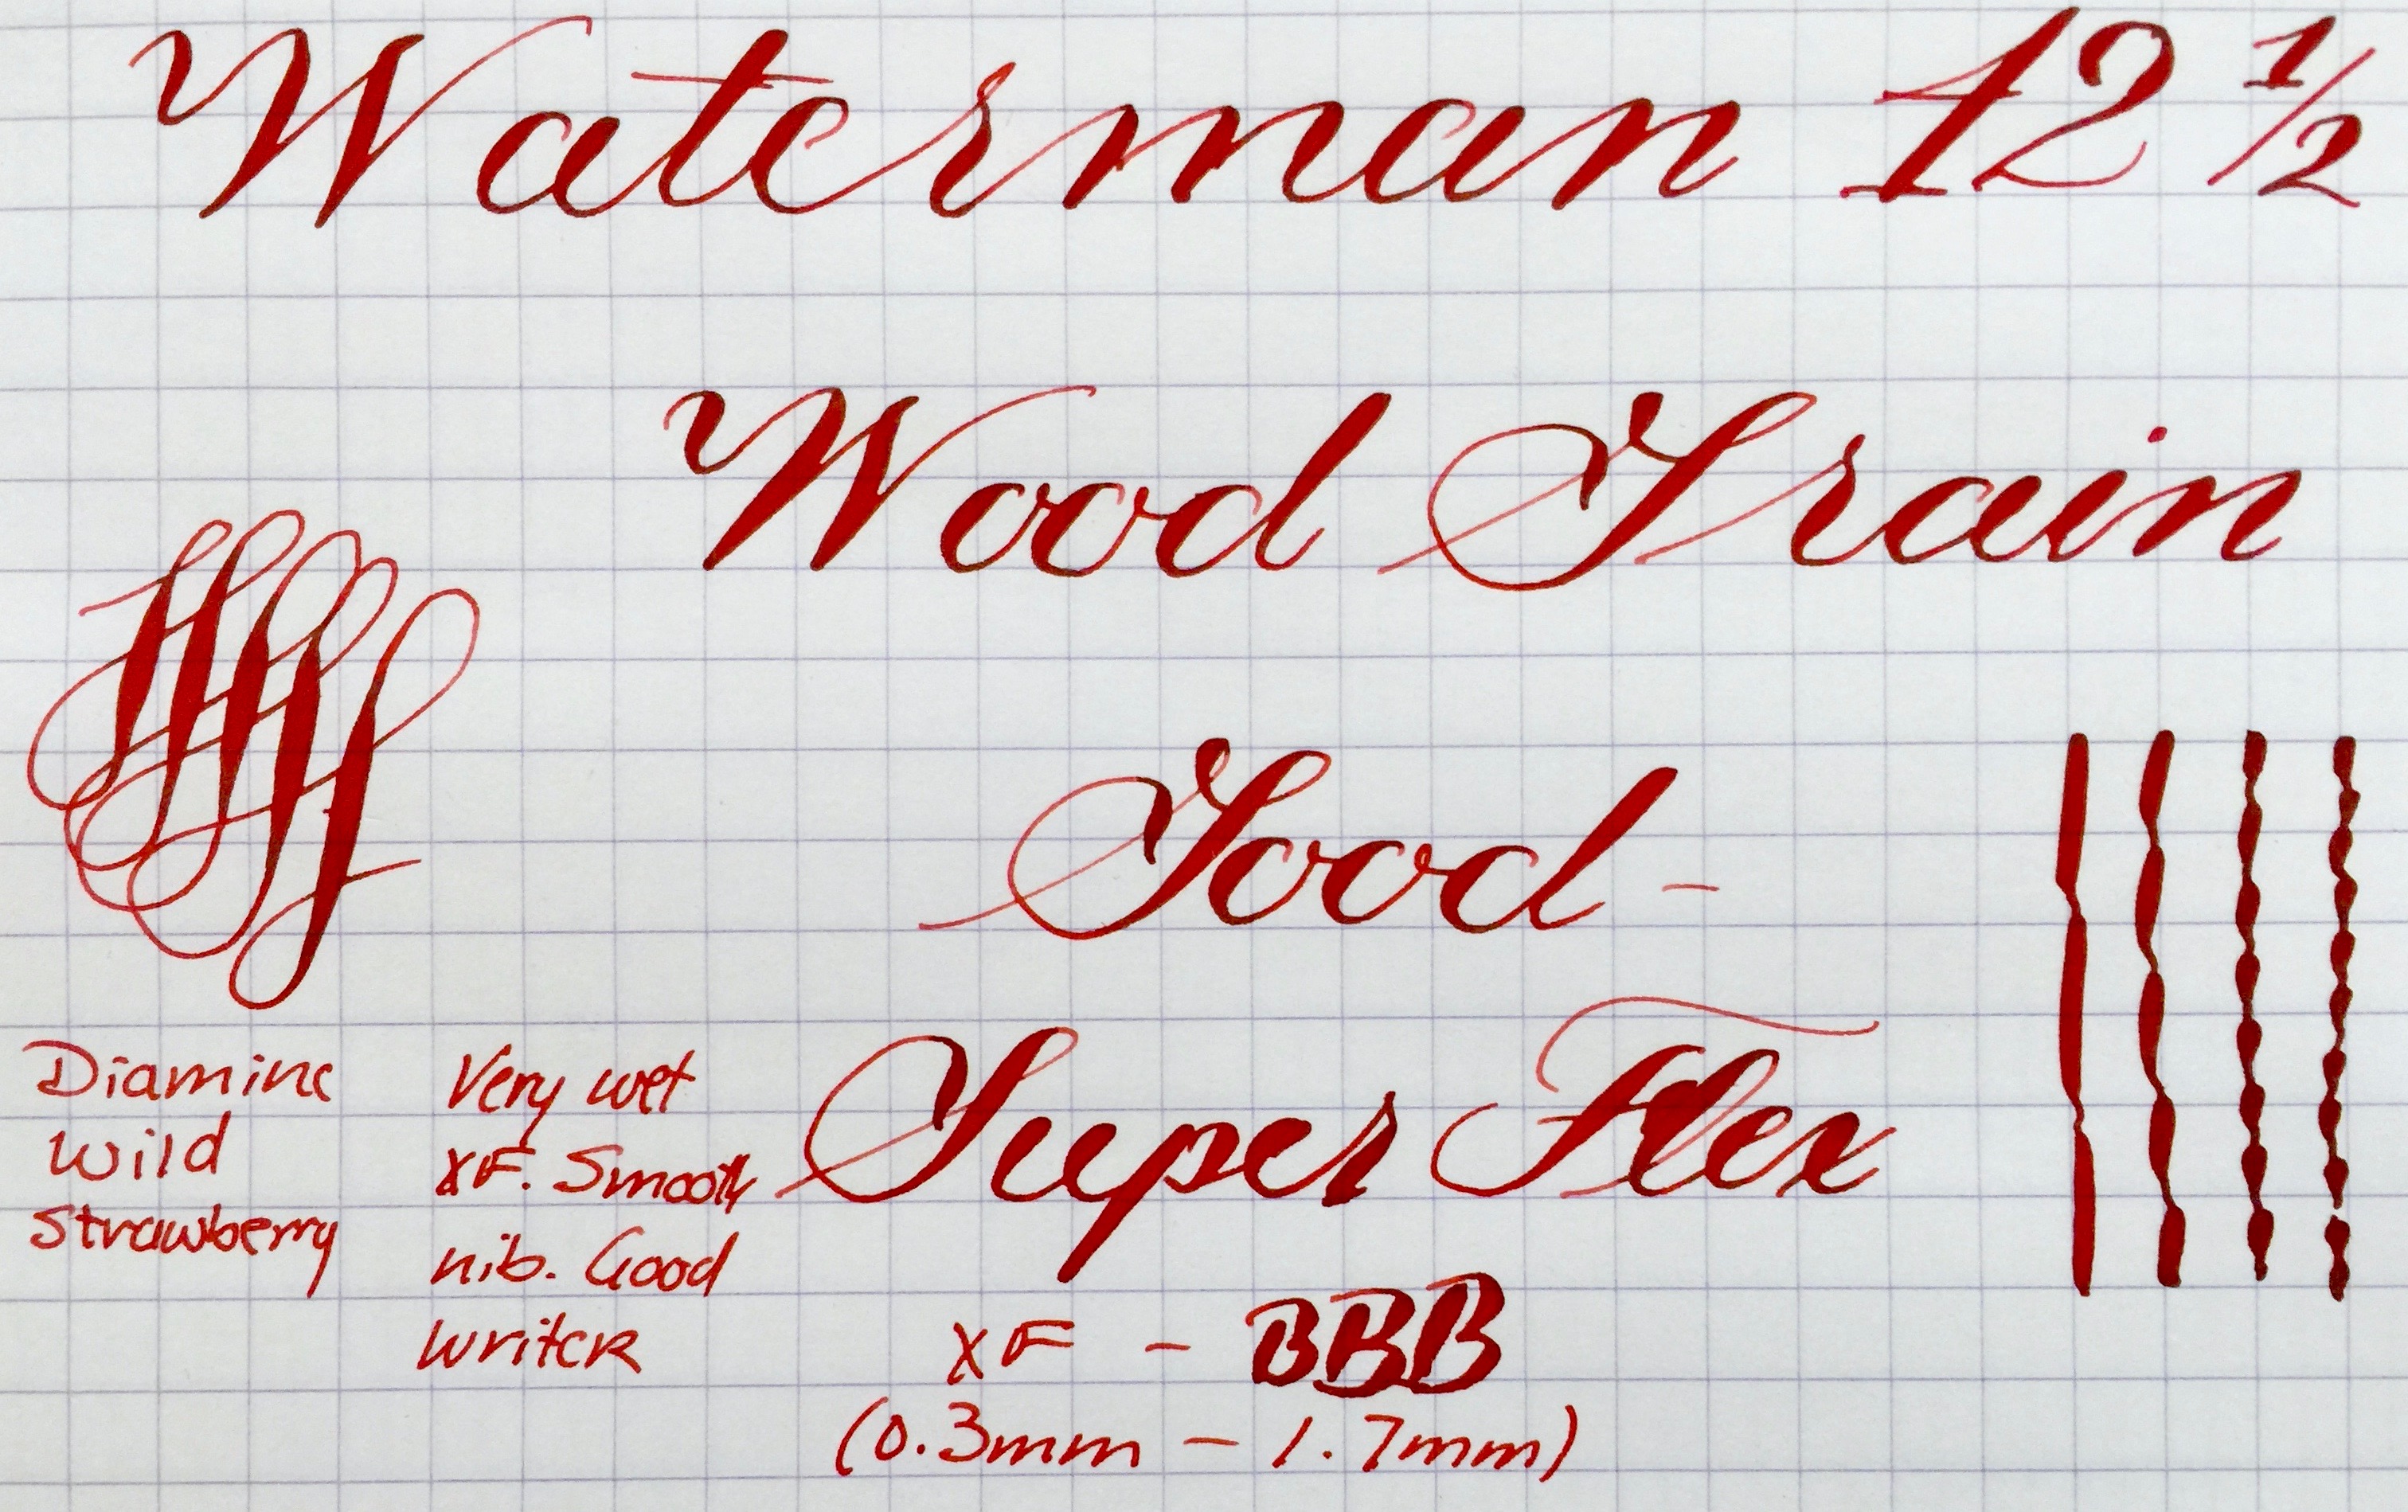 Waterman 12 1/2
Wood Grain
Good -
Super Flex
XF - BBB
(0.3mm - 1.7mm)
Diamine
Wild
Strawberry
Very wet
XF. Smooth
nib. Good
writer